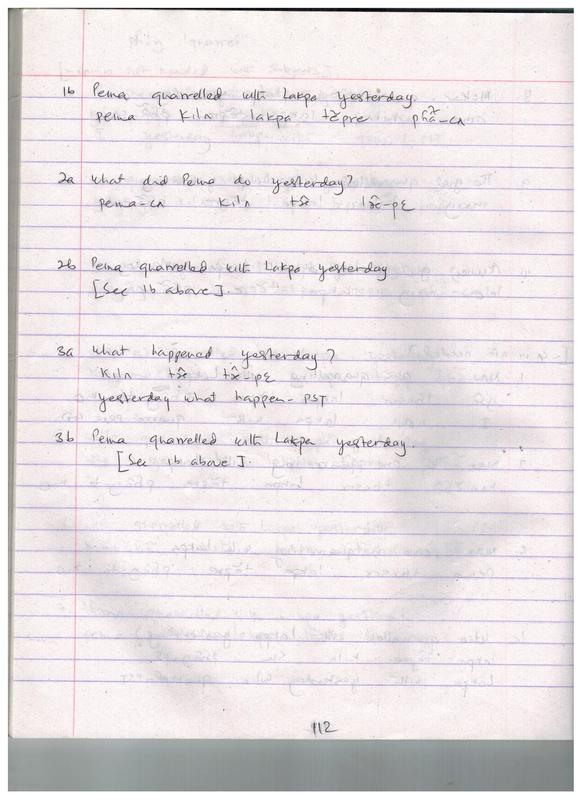 1b Pema quarrelled with Lakpa yesterday.
pema kilʌ lakpa
2a What did Pema do yesterday?
pema-cʌ kilʌ tâ -pɛ
2b Pema quarrelled with Lakpa yesterday
[See 1b above].
3a What happened yesterday?
kilʌ tâ tâ-pɛ
yesterday what happen-PST
3b Pema quarrelled with Lakpa yesterday.
[See 1b above].
112